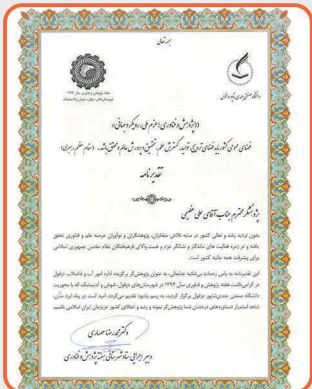 بسمه تعالی
هفته پژوهش و فناوری سال ۱۳۹۴
شهرستان‌های دزفول، شوش و اندیمشک
دانشگاه صنعتی جندی شاپور دزفول
((پژوهش و فناوری؛ عزم ملی، رویکرد جهانی))
فضای عمومی کشور باید فضای ترویج، تولید، گسترش علم، تحقیق و پرورش عالم و محقق باشد. (مقام معظم رهبری)
تقدیرنامه
پژوهشگر محترم جناب آقای علی
بدون تردید رشد و تعالی کشور در سایه تلاش متفکران، پژوهشگران و نوآوران عرصه علم و فناوری تحقق
یافته و در زمره فعالیت های ماندگار و نشانگر عزم و همت والای فرهیختگان نظام مقدس جمهوری اسلامی
برای پیشرفت همه جانبه کشور است.
این تقدیرنامه به پاس زحمات بی‌شائبه جنابعالی، به عنوان پژوهش‌گر برگزیده اداره امور آب و فاضلاب دزفول
در گرامی‌داشت هفته پژوهش و فناوری سال ۱۳۹۴ در شهرستان‌های دزفول، شوش و اندیمشک که با محوریت
دانشگاه صنعتی جندی‌شاپور دزفول برگزار گردید، به رسم یادبود تقدیم می‌گردد. امید است در پناه ایزد منّان،
شاهد استمرار دستاوردهای درخشان شما پژوهش‌گر نمونه و رشد و اعتلای کشور عزیزمان ایران اسلامی باشیم.
دکتر محمدرضا عصاری
دبیر اجرایی ستاد شهرستانی هفته پژوهش و فناوری